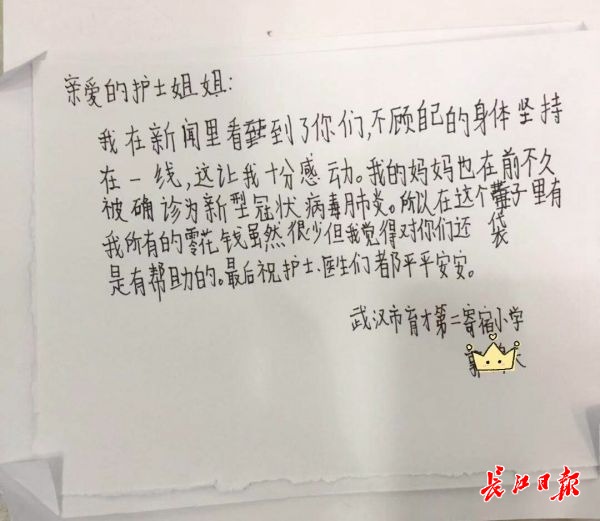 亲爱的护士姐姐:
我在新闻里看到了你们,不顾自己的身体坚持
在一线,这让我十分感动。我的妈妈也在前不久
被确诊为新型冠状病毒肺炎。所以在这个袋子里有
我所有的零花钱虽然很少但我觉得对你们还
是有帮助的。最后祝护士、医生们都平平安安。
武汉市育才第二寄宿小学
长江日报